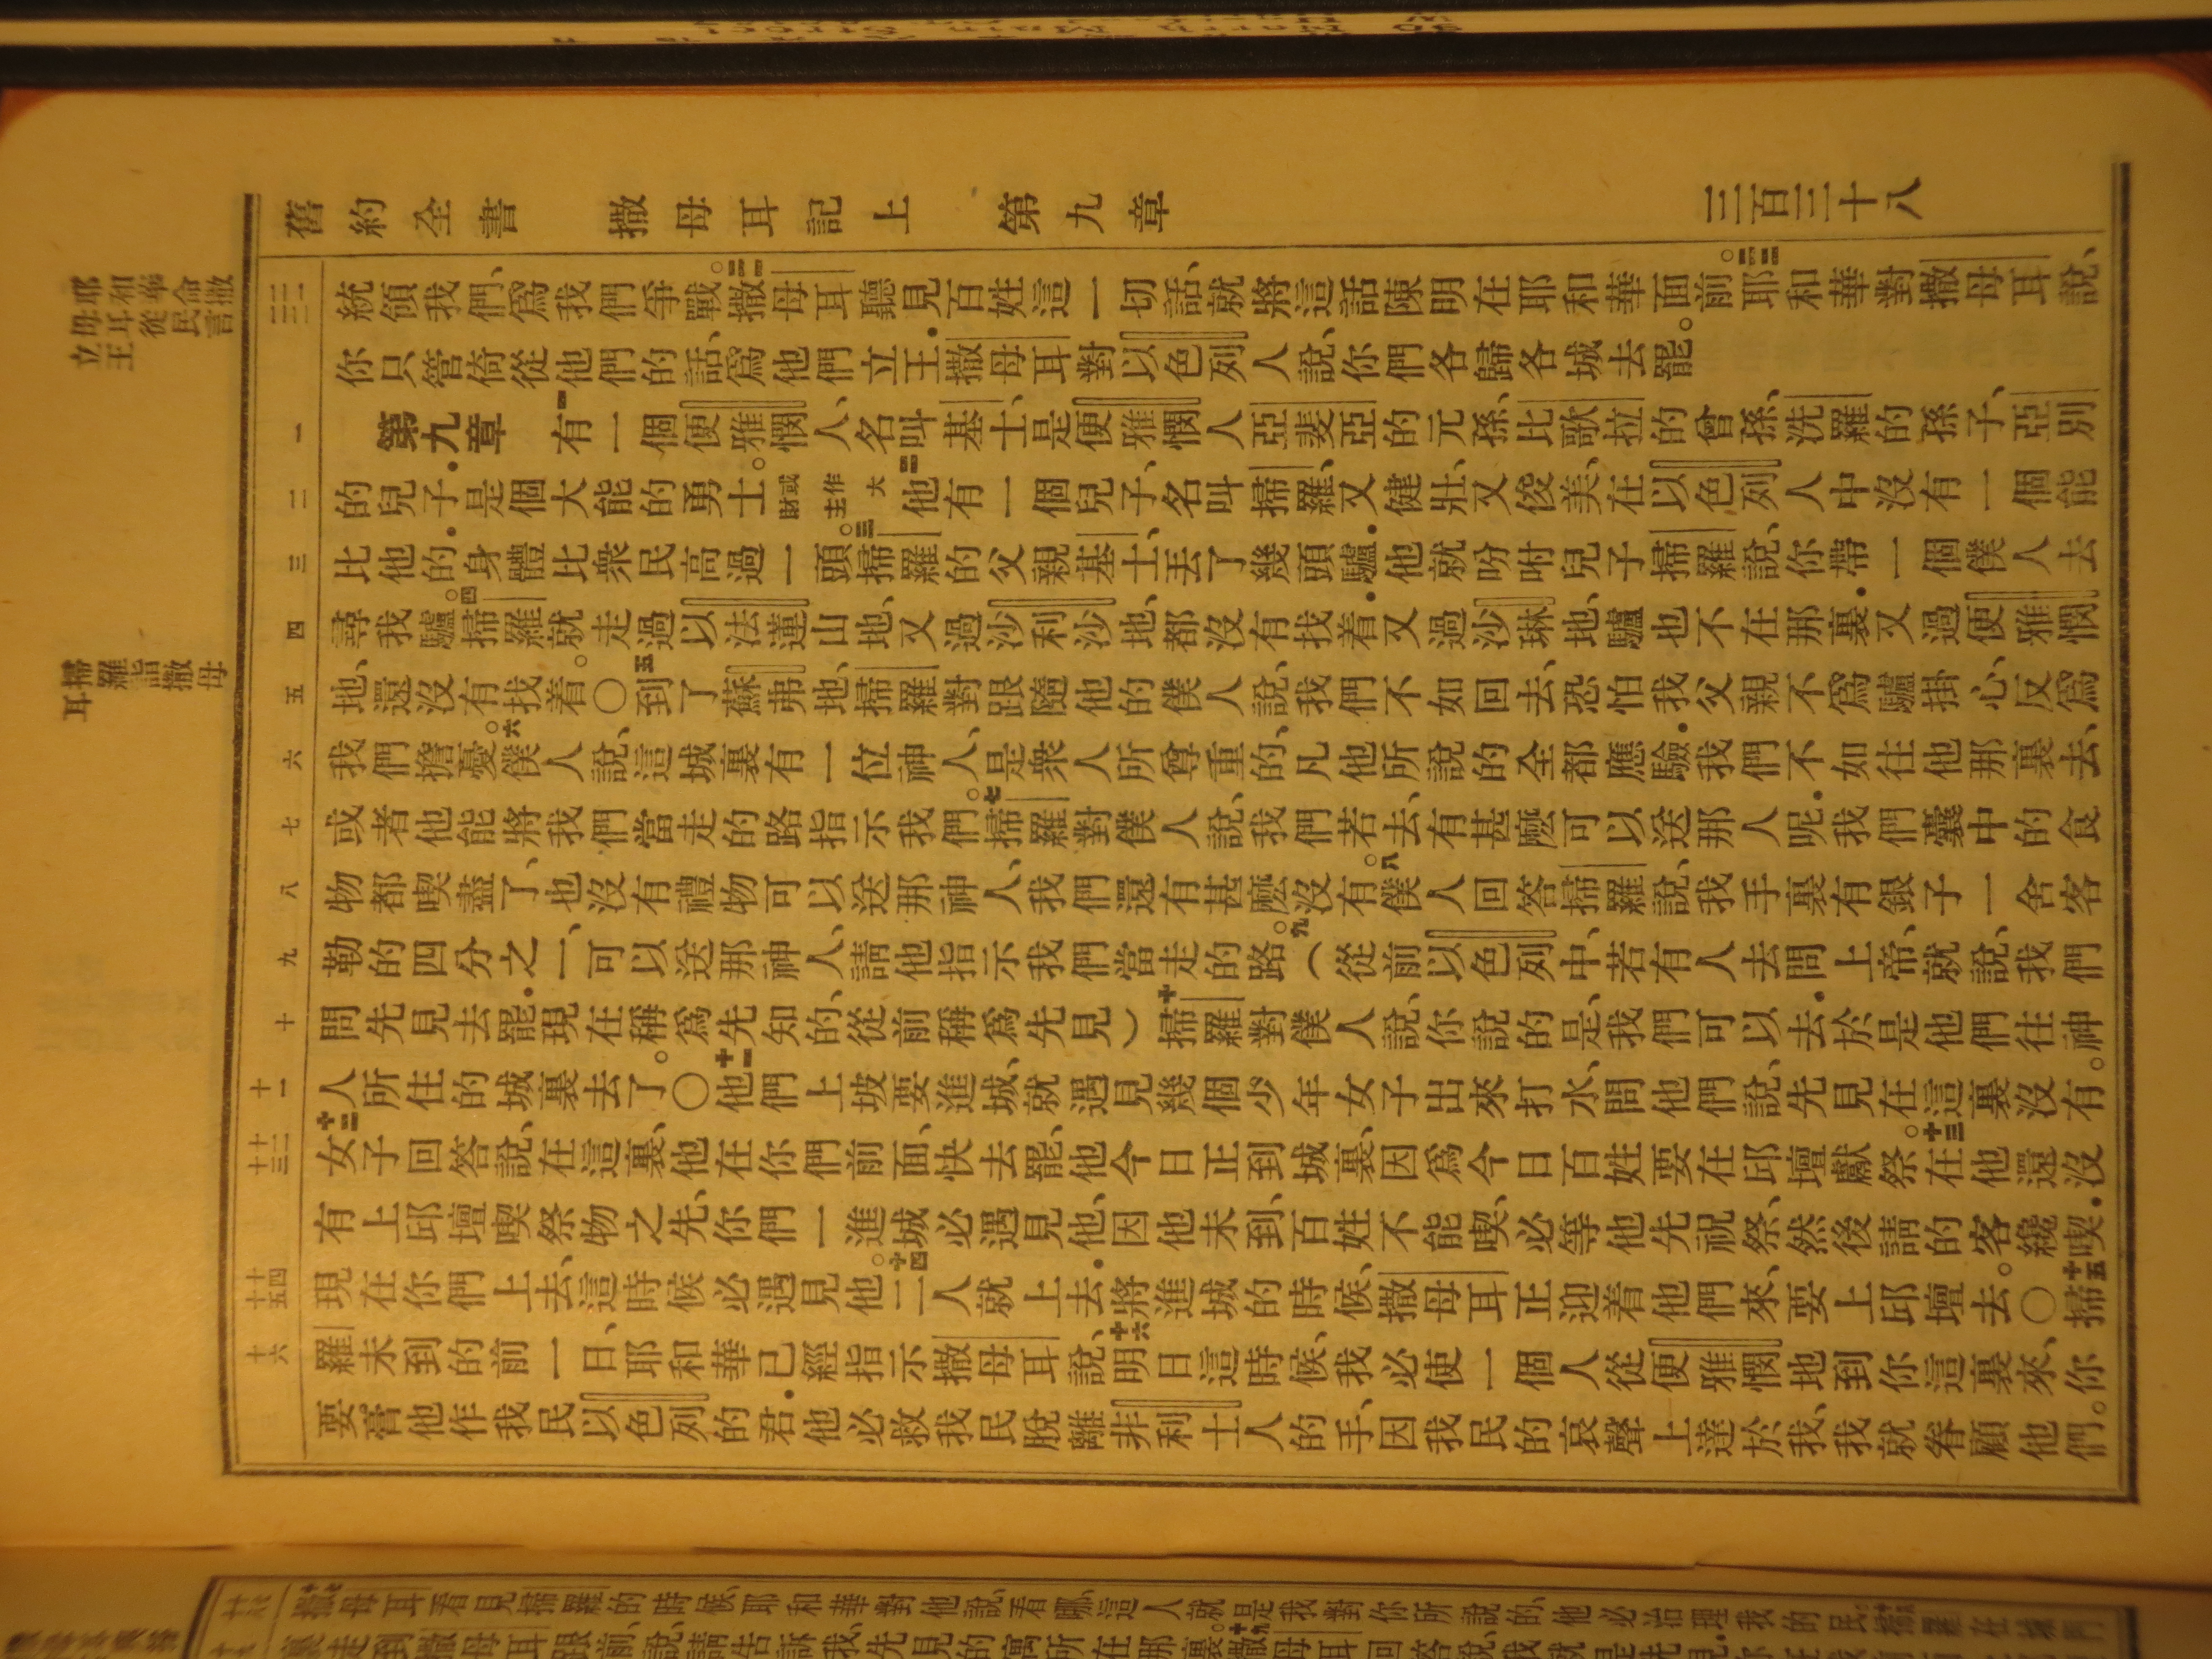 舊約全書 撒母耳記上 第九章 三百三十八
耶和華命撒
母耳從民言
立王
掃羅詣撒母
耳
二一 二二
統領我們、爲我們爭戰。二一撒母耳聽見百姓這一切話、就將這話陳明在耶和華面前。二二耶和華對撒母耳說、
你只管倚從他們的話、爲他們立王．撒母耳對以色列人說、你們各歸各城去罷。
一
第九章 一有一個便雅憫人、名叫基士、是便雅憫人亞斐亞的元孫、比歌拉的曾孫、洗羅的孫子、亞別
二
的兒子．是個大能的勇士。或作大財主二他有一個兒子、名叫掃羅、又健壯、又俊美、在以色列人中沒有一個能
三
比他的．身體比衆民高過一頭。三掃羅的父親基士、丟了幾頭驢．他就吩咐兒子掃羅說、你帶一個僕人去
四
尋我驢。四掃羅就走過以法蓮山地、又過沙利沙地、都沒有找着．又過沙琳地、驢也不在那裏．又過便雅憫
五
地、還沒有找着。〇五到了蘇弗地、掃羅對跟隨他的僕人說、我們不如回去、恐怕我父親不爲驢掛心、反爲
六
我們擔憂。六僕人說、這城裏有一位神人、是衆人所尊重的、凡他所說的全都應驗．我們不如往他那裏去、
七
或者他能將我們當走的路指示我們。七掃羅對僕人說、我們若去、有甚麽可以送那人呢．我們囊中的食
八
物都喫盡了、也沒有禮物可以送那神人、我們還有甚麽沒有。八僕人回答掃羅說、我手裏有銀子一舍客
九
勒的四分之一、可以送那神人、請他指示我們當走的路。九（從前以色列中、若有人去問上帝、就說、我們
十
問先見去罷．現在稱爲先知的、從前稱爲先見）十掃羅對僕人說、你說的是、我們可以去．於是他們往神
十一
人所住的城裏去了。〇十一他們上坡要進城、就遇見幾個少年女子出來打水、問他們說、先見在這裏沒有。
十二 十三
十二女子回答說、在這裏、他在你們前面、快去罷、他今日正到城裏、因爲今日百姓要在邱壇獻祭。十三在他還沒
有上邱壇喫祭物之先、你們一進城必遇見他、因他未到、百姓不能喫、必等他先祝祭、然後請的客纔喫．
十四 十五
現在你們上去、這時候必遇見他。十四二人就上去．將進城的時候、撒母耳正迎着他們來、要上邱壇去。〇十五掃
十六
羅未到的前一日、耶和華已經指示撒母耳說、十六明日這時候、我必使一個人從便雅憫地到你這裏來、你
要膏他作我民以色列的君．他必救我民脫離非利士人的手、因我民的哀聲上達於我、我就眷顧他們。
十七撒母耳看見掃羅的時候、耶和華對他說、看哪、這人就是我對你所說的、他必治理我的民。十八掃羅在城門
裏走到撒母耳跟前、說、請告訴我、先見的寓所在那裏。十九撒母耳回答說、我就是先見．